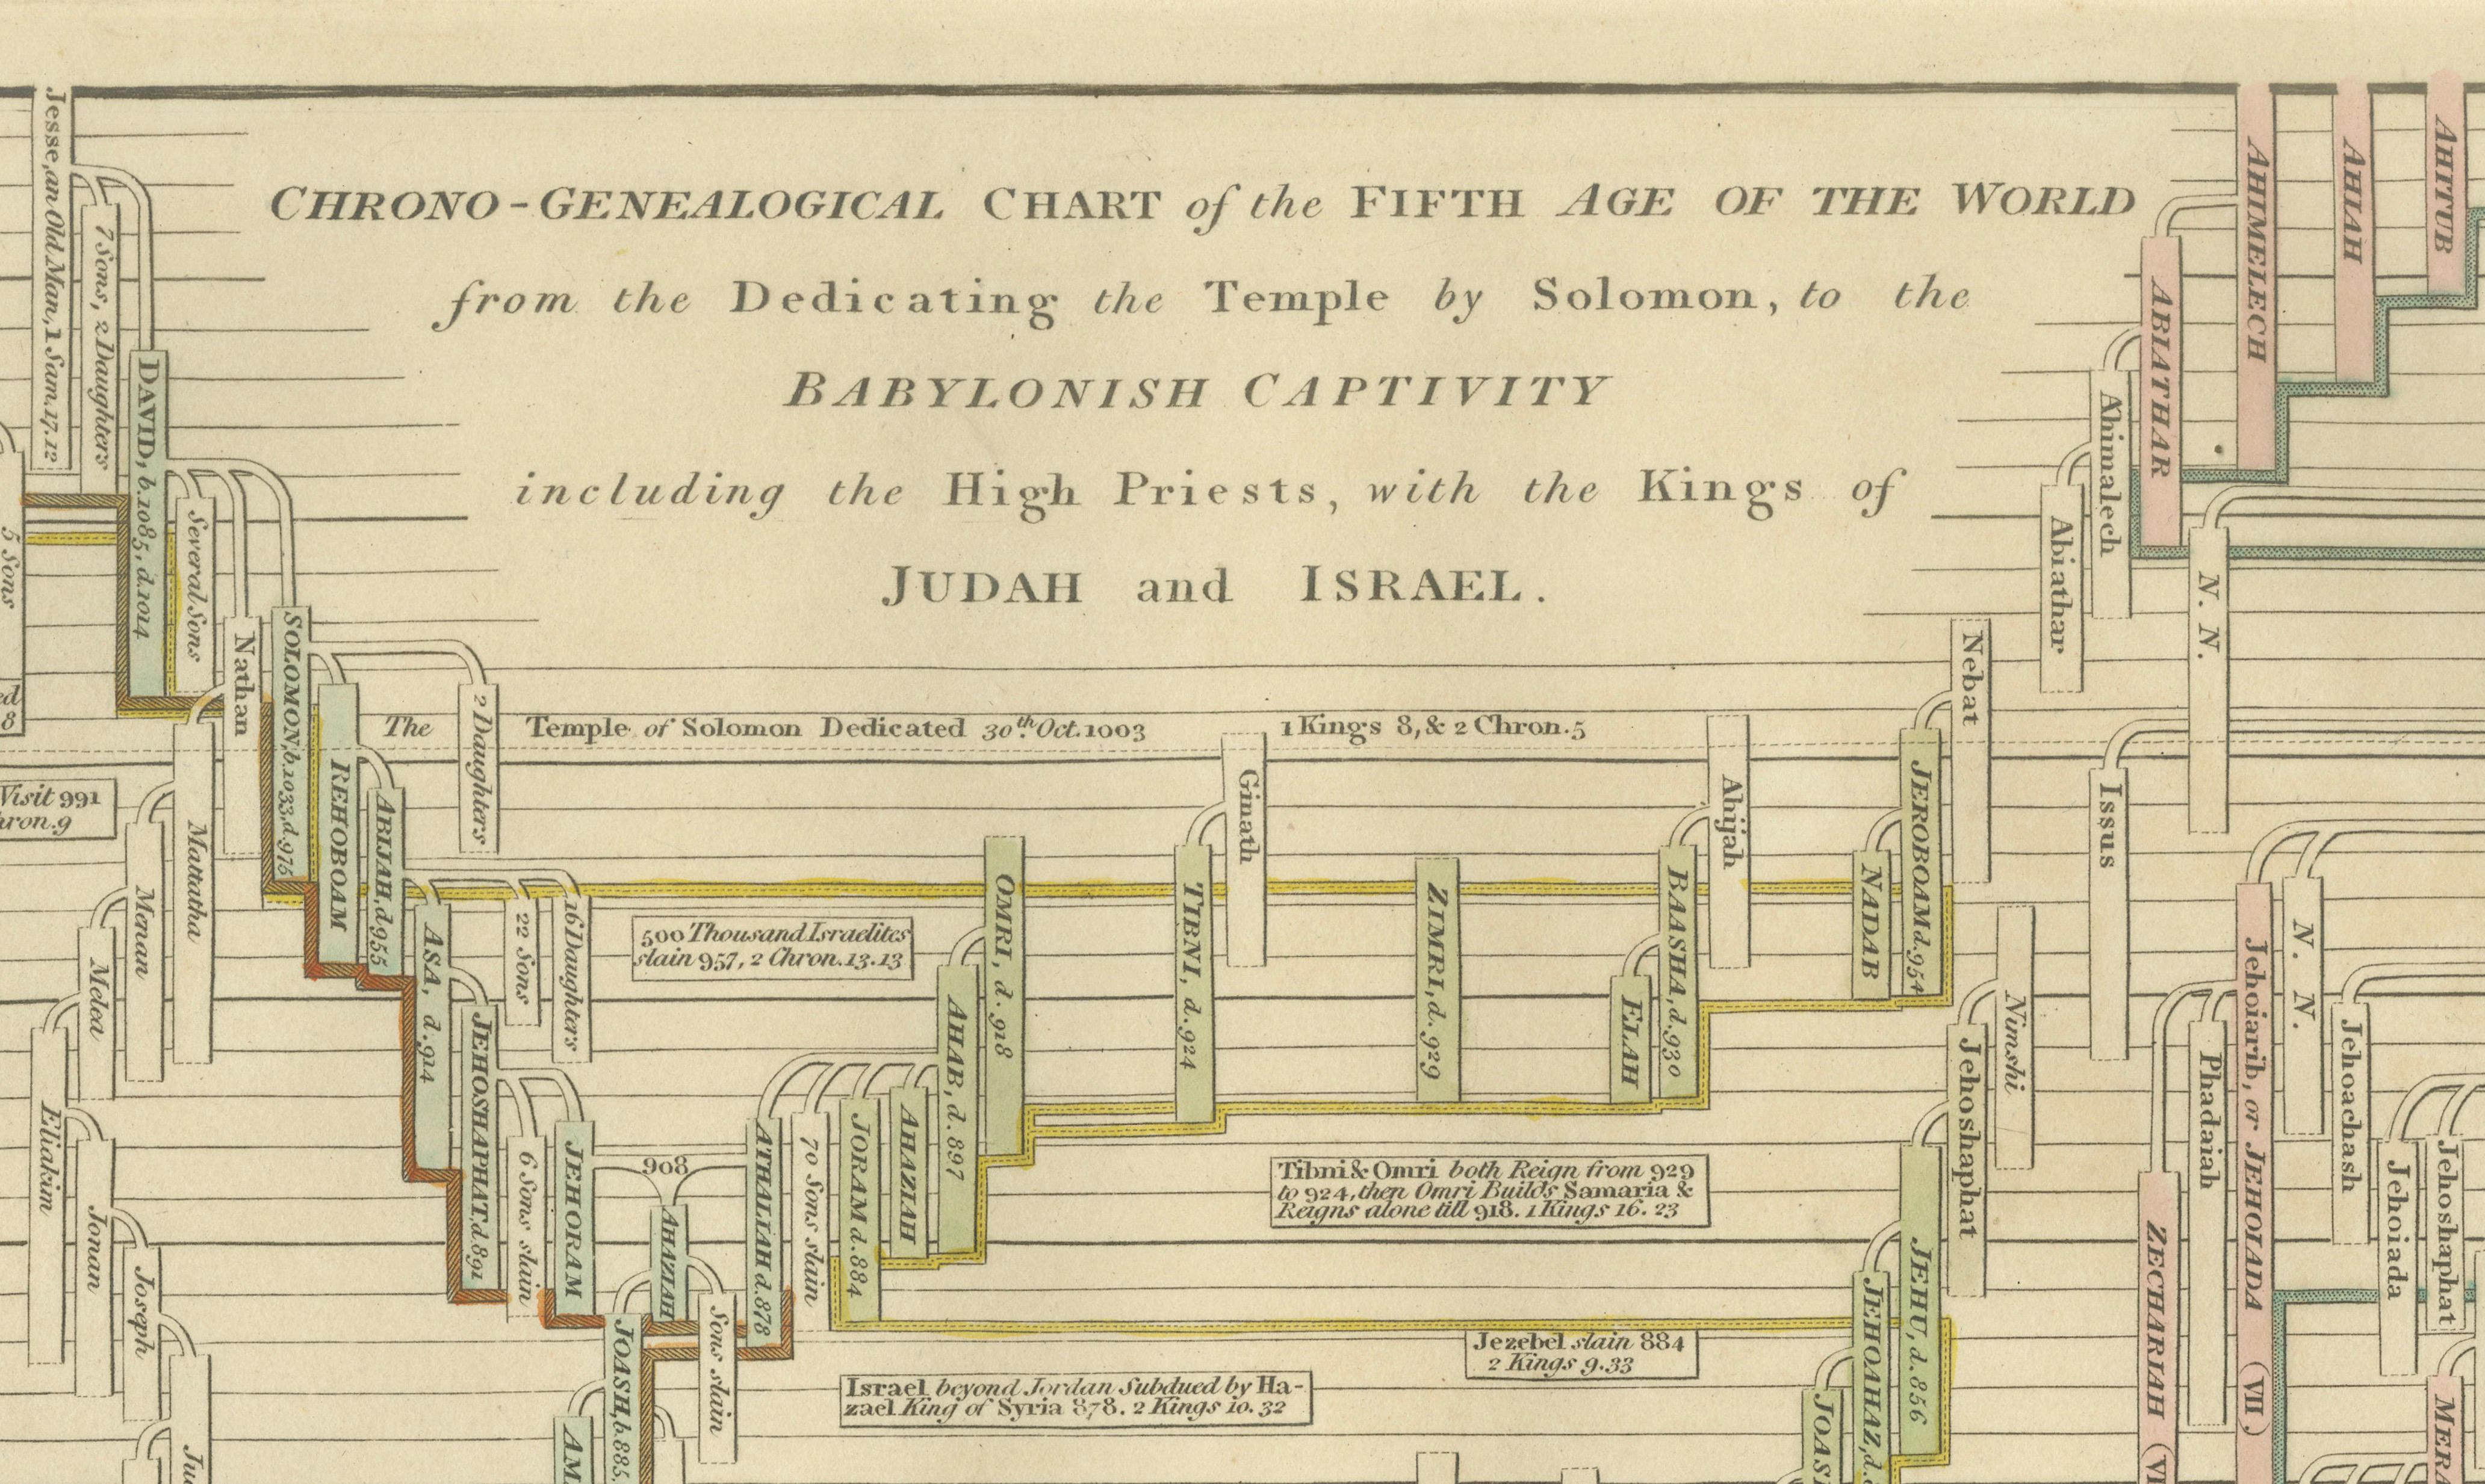 CHRONO-GENEALOGICAL CHART of the FIFTH AGE OF THE WORLD
from the Dedicating the Temple by Solomon, to the
BABYLONISH CAPTIVITY
including the High Priests, with the Kings of
JUDAH and ISRAEL.
Jesse, an Old Man, 1 Sam. 17. 12
7 Sons, 2 Daughters
DAVID, b. 1085, d. 1014
5 Sons
Several Sons
Nathan
SOLOMON, b. 1033, d. 975
REHOBOAM
2 Daughters
The Temple of Solomon Dedicated 30th. Oct. 1003
1 Kings 8, & 2 Chron. 5
Visit 991
hron. 9
Mattatha
Menan
Melea
Eliakim
Jonan
Joseph
ABIJAH, d. 955
ASA, d. 914
22 Sons
16 Daughters
500 Thousand Israelites
slain 957, 2 Chron. 13. 13
JEHOSHAPHAT, d. 891
6 Sons slain
JEHORAM
908
AHAZIAH
Sons slain
JOASH, b. 885,
AM
ATHALIAH d. 878
70 Sons slain
JORAM d. 884
AHAZIAH
AHAB, d. 897
OMRI, d. 918
TIBNI, d. 924
Ginath
ZIMRI, d. 929
ELAH
BAASHA, d. 930
Ahijah
NADAB
JEROBOAM d. 954
Nebat
Tibni & Omri both Reign from 929
to 924, then Omri Builds Samaria &
Reigns alone till 918. 1 Kings 16. 23
Jezebel slain 884
2 Kings 9. 33
Israel beyond Jordan Subdued by Ha-
zael King of Syria 878. 2 Kings 10. 32
Nimshi
Jehoshaphat
JEHU, d. 856
JEHOAHAZ, d.
JOAS
AHITUB
AHIAH
AHIMELECH
ABIATHAR
Ahimalech
Abiathar
N. N.
Issus
Jehoiarib, or JEHOIADA (VII)
N. N.
Phadaiah
ZECHARIAH (VI
Jehoachash
Jehoiada
Jehoshaphat
MER